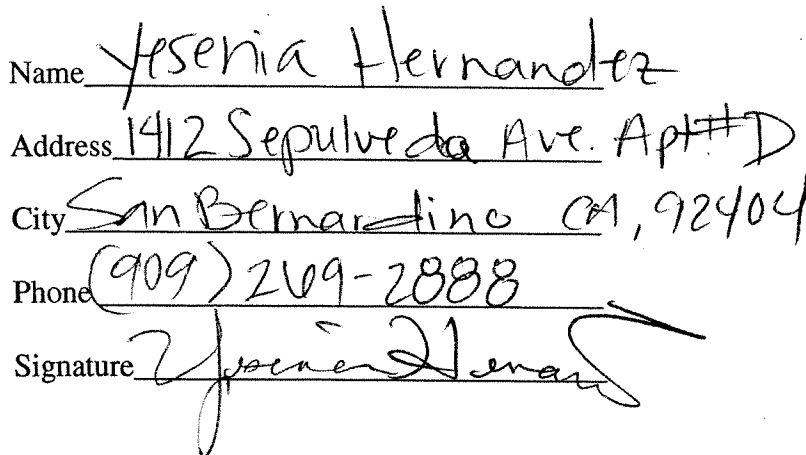 Name Yesenia Hernandez
Address 1412 Sepulveda Ave. Apt#D
City San Bernardino CA, 92404
Phone (909) 269-2888
Signature Yesenia Hernan